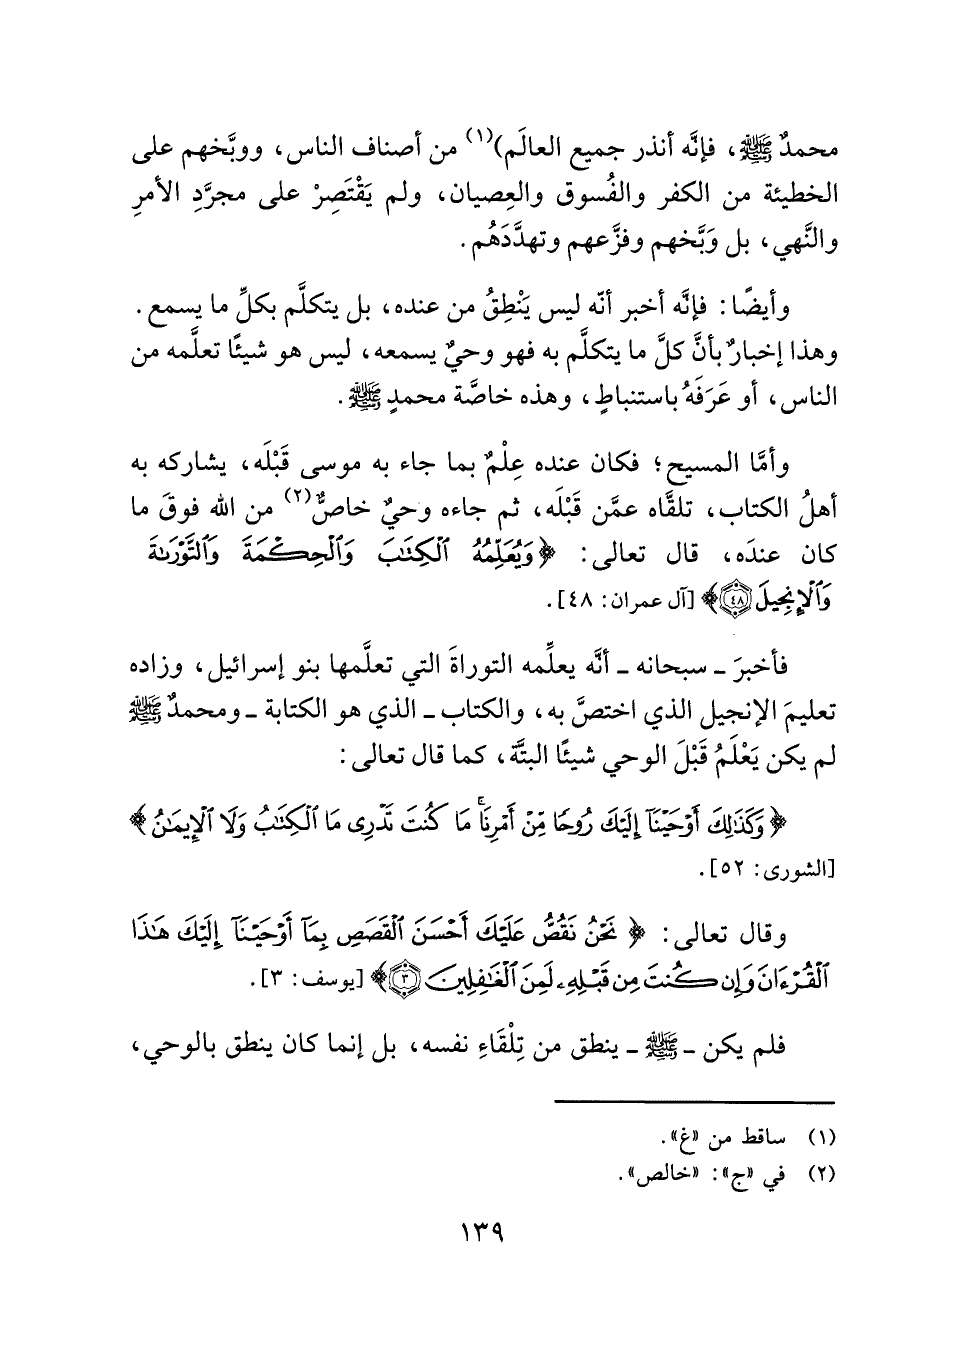 محمدٌ ﷺ، فإنَّه أنذر جميع العالَم)(١) من أصناف الناس، ووبَّخهم على
الخطيئة من الكفر والفُسوق والعِصيان، ولم يَقْتَصِرْ على مجرَّدِ الأمرِ
والنَّهي، بل وَبَّخهم وفزَّعهم وتهدَّدَهُم.
وأيضًا: فإنَّه أخبر أنّه ليس يَنْطِقُ من عنده، بل يتكلَّم بكلِّ ما يسمع.
وهذا إخبارٌ بأنَّ كلَّ ما يتكلَّم به فهو وحيٌ يسمعه، ليس هو شيئًا تعلَّمه من
الناس، أو عَرَفَهُ باستنباطٍ، وهذه خاصَّة محمدٍ ﷺ.
وأمَّا المسيح؛ فكان عنده عِلْمٌ بما جاء به موسى قَبْلَه، يشاركه به
أهلُ الكتاب، تلقَّاه عمَّن قَبْلَه، ثم جاءه وحيٌ خاصٌّ(٢) من الله فوقَ ما
كان عندَه، قال تعالى: ﴿وَيُعَلِّمُهُ ٱلْكِتَٰبَ وَٱلْحِكْمَةَ وَٱلتَّوْرَىٰةَ
وَٱلْإِنجِيلَ ٤٨﴾ [آل عمران: ٤٨].
فأخبرَ ـ سبحانه ـ أنَّه يعلِّمه التوراةَ التي تعلَّمها بنو إسرائيل، وزاده
تعليمَ الإنجيل الذي اختصَّ به، والكتاب ـ الذي هو الكتابة ـ ومحمدٌ ﷺ
لم يكن يَعْلَمُ قَبْلَ الوحي شيئًا البتَّة، كما قال تعالى:
﴿وَكَذَٰلِكَ أَوْحَيْنَآ إِلَيْكَ رُوحًا مِّنْ أَمْرِنَا ۚ مَا كُنتَ تَدْرِى مَا ٱلْكِتَٰبُ وَلَا ٱلْإِيمَٰنُ﴾
[الشورى: ٥٢].
وقال تعالى: ﴿نَحْنُ نَقُصُّ عَلَيْكَ أَحْسَنَ ٱلْقَصَصِ بِمَآ أَوْحَيْنَآ إِلَيْكَ هَٰذَا
ٱلْقُرْءَانَ وَإِن كُنتَ مِن قَبْلِهِۦ لَمِنَ ٱلْغَٰفِلِينَ ٣﴾ [يوسف: ٣].
فلم يكن ـ ﷺ ـ ينطق من تِلْقَاءِ نفسه، بل إنما كان ينطق بالوحي،
(١) ساقط من «غ».
(٢) في «ج»: «خالص».
١٣٩